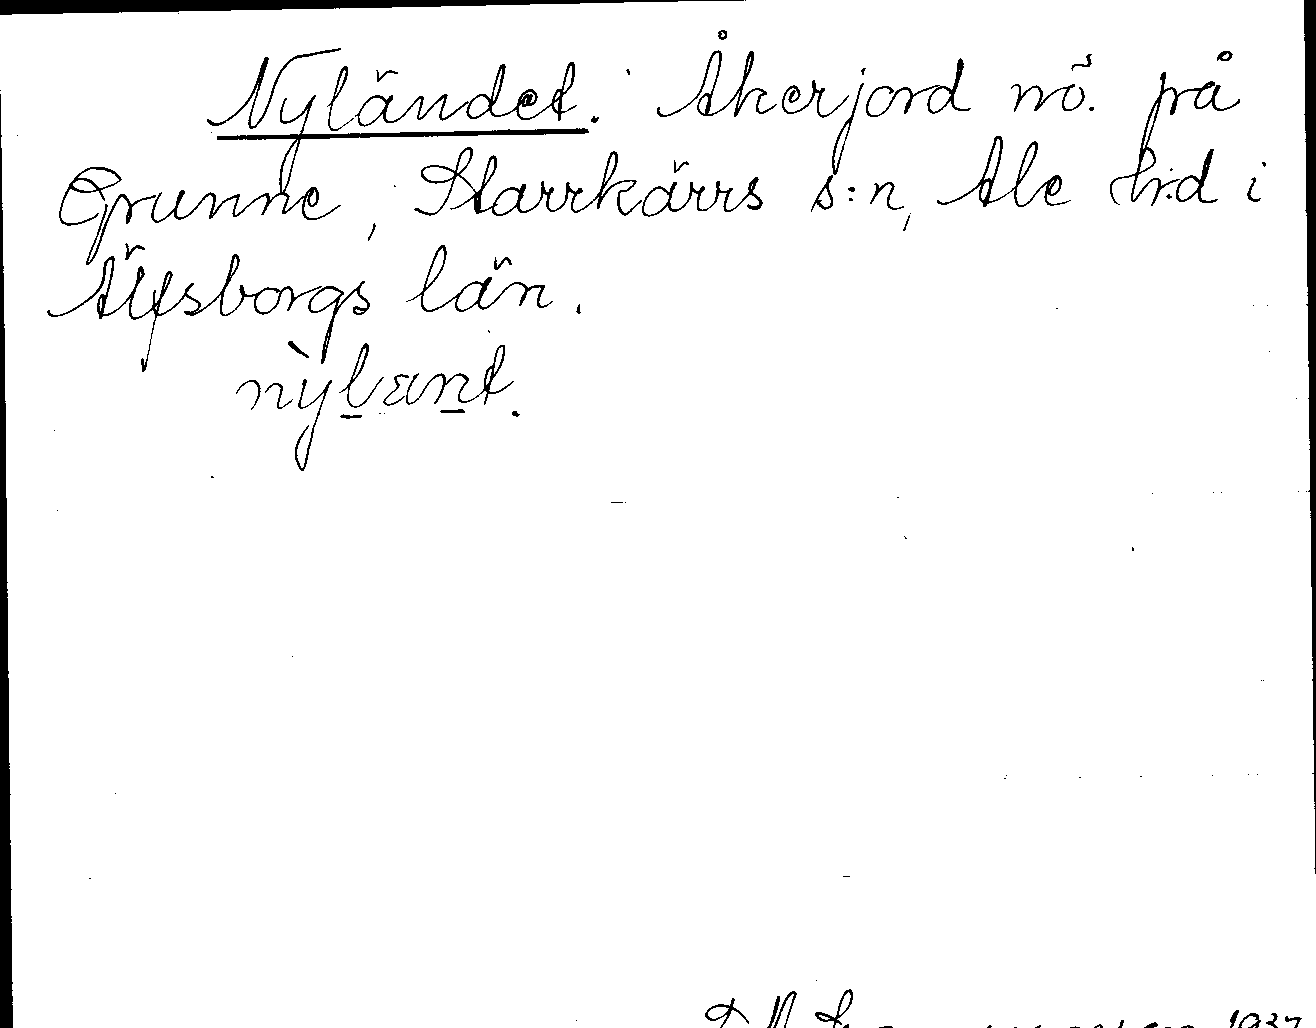 Nyländet. Åkerjord nö. på
Grunne, Starrkärrs s:n, Ale hrd i
Älfsborgs län.
nỳlænt.
1937